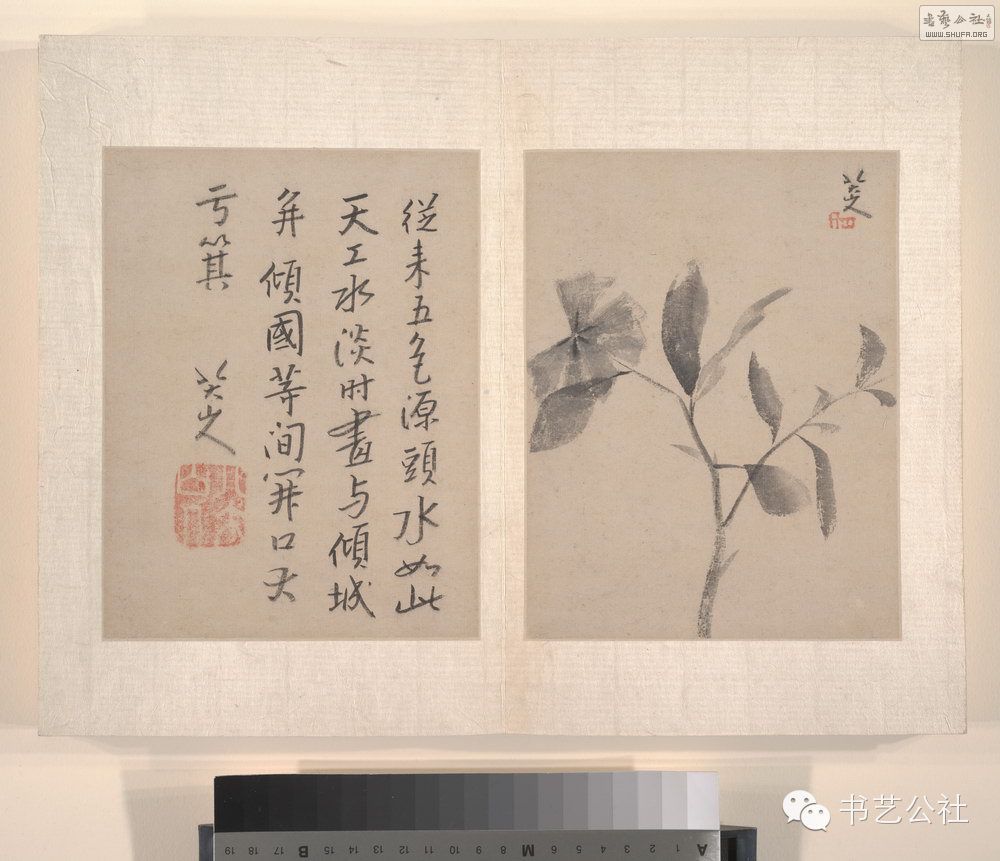 書藝公社
WWW.SHUFA.ORG
八大山人
從来五色源頭水如此
天工水淡时畫与傾城
并傾國等间開口大
亏箕
八大山人
A 1 2 3 4 5 6 M 8 9 10 11 12 13 14 15 B 17 18 19
书艺公社